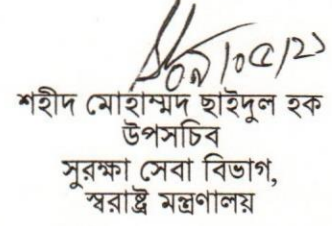 শহীদ মোহাম্মদ ছাইদুল হক
উপসচিব
সুরক্ষা সেবা বিভাগ,
স্বরাষ্ট্র মন্ত্রণালয়